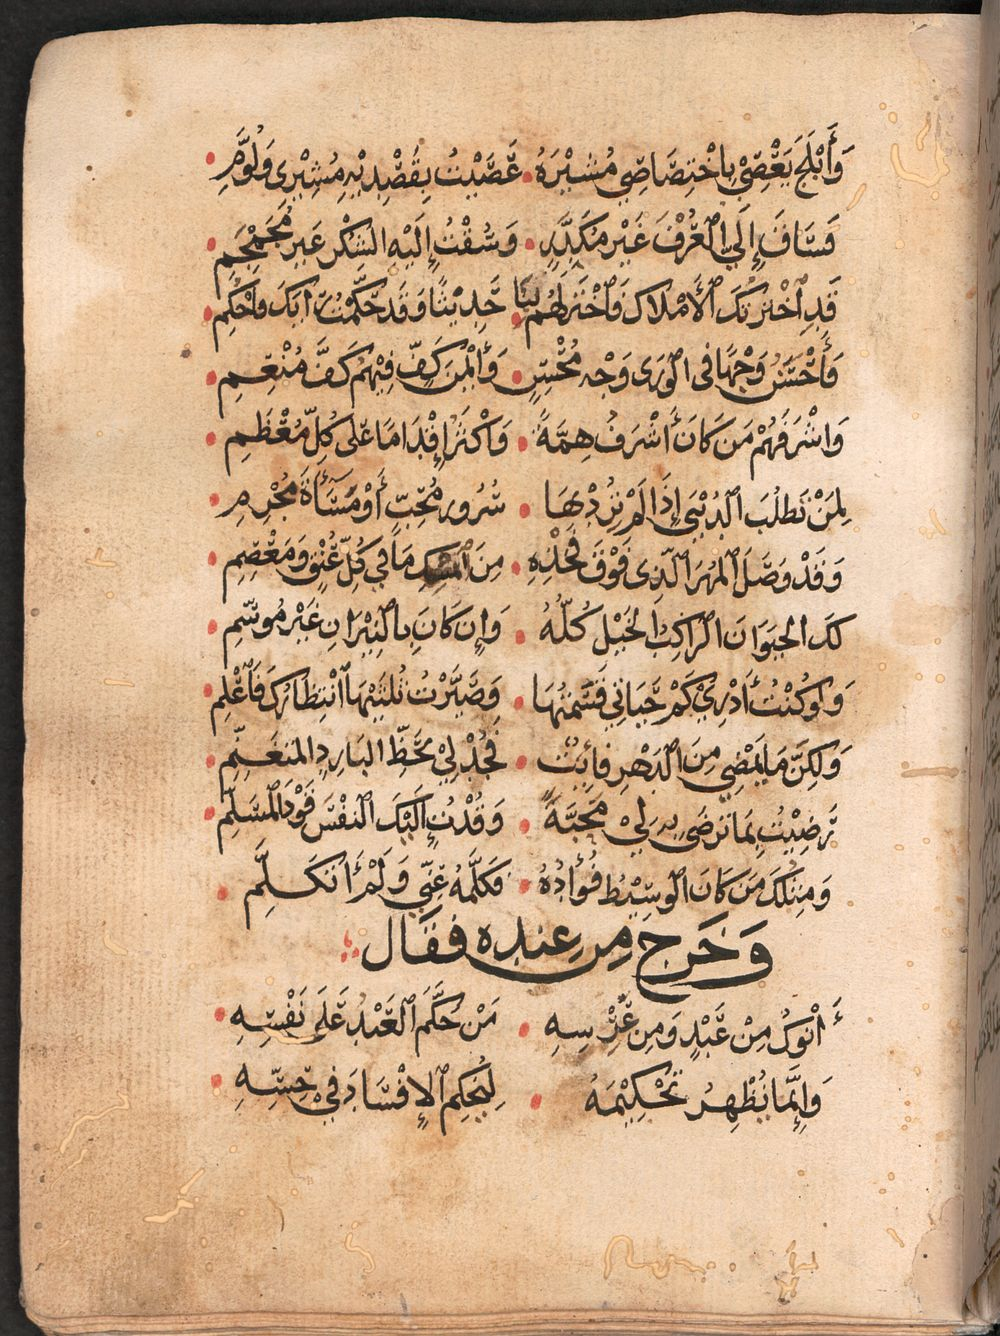 وَأَبْلَجَ يَعْصِي بِاخْتِصَاصِي مُشِيْرَهُ عَصَيْتُ بِقَصْدِيْهِ مُشِيْرِي وَلُوَّمِ
فَسَاقَ إِلَيَّ الْعُرْفَ غَيْرَ مُكَدَّرٍ وَسُقْتُ إِلَيْهِ الشُكْرَ غَيرَ مُجَمْجَمِ
قَدِ اخْتَرْتُكَ الْأَمْلَاكَ فَاخْتَرْ لَهُم بِنَا حَدِيْثًا وَقَد حَكَّمْتُ رَأيَكَ فَاحْكُمِ
فَأَحْسَنُ وَجْهًا فى الْوَرَى وَجْه مُحْسِنٍ وَأَيْمَنُ كَفّ فِيْهِمُ كَفُّ مُنْعِمِ
وَاشْرَفَهُمْ مَن كَانَ أَشْرَفُ هِمَّةً وَأكْثَرَ إِقْدَامًا عَلى كُلِّ مُعْظَمِ
لِمَنْ تَطلُبُ الْدُنْيَي إِذَا لَمْ تُرِدْ بِهَا سُرُورَ مُحِبٍّ أَوْ مَسَأَةَ مُجْرِمِ
وَقَدْ وَصَلَ الْمُهرُ الْذِى فَوْقَ فَخْذِهِ مِنَ اسْمِكَ مَا فِي كُلِّ عُنْقٍ وَمَعْصِمِ
لَكَ الحَيَوَانَ الْرَاكِبُ الخَيْلَ كُلُّهُ وَإِن كَانَ بِالْنِيْرَانِ غَيْرَ مُوَسَّمِ
وَلوْ كُنْتُ أَدْرِيْ كَمْ حَيَاتِي قَسَمْتُهَا وَصَيَّرْتُ ثُلثَيْهَا انْتِظَارَكَ فَاعْلَمِ
وَلكِنَّ مَا يَمْضِي مِنَ الْدَهْرِ فَائِتٌ فَجُدْ لِيْ بحَظِّ البَادِرِ المتغَنِّمِ
رَضِيْتُ بِمَا تَرضَى بِهِ لِيْ مَحَبَّةً وَقُدْتُ إِلَيْكَ الْنَفْسَ قَوْدَ الْمُسَلِّمِ
وَمِثلُكَ مَن كَانَ الْوَسِيْطُ فُؤَادَهُ فَكَلَّمَهُ عَنِّي وَلَمْ أَتَكَلَّمِ
وَخَرَجَ مِن عِندِهِ فَقَال
أَنْوَكُ مِنْ عَبْدٍ وَمِن عِرْسِهِ مَن حَكَّمَ الْعَبْدَ عَلَى نَفْسِهِ
وَإِنَّمَا يُظْهِرُ تَحْكِيْمَهُ لِيُحْكِمَ الإِفْسَادَ فِيْ حِسِّهِ